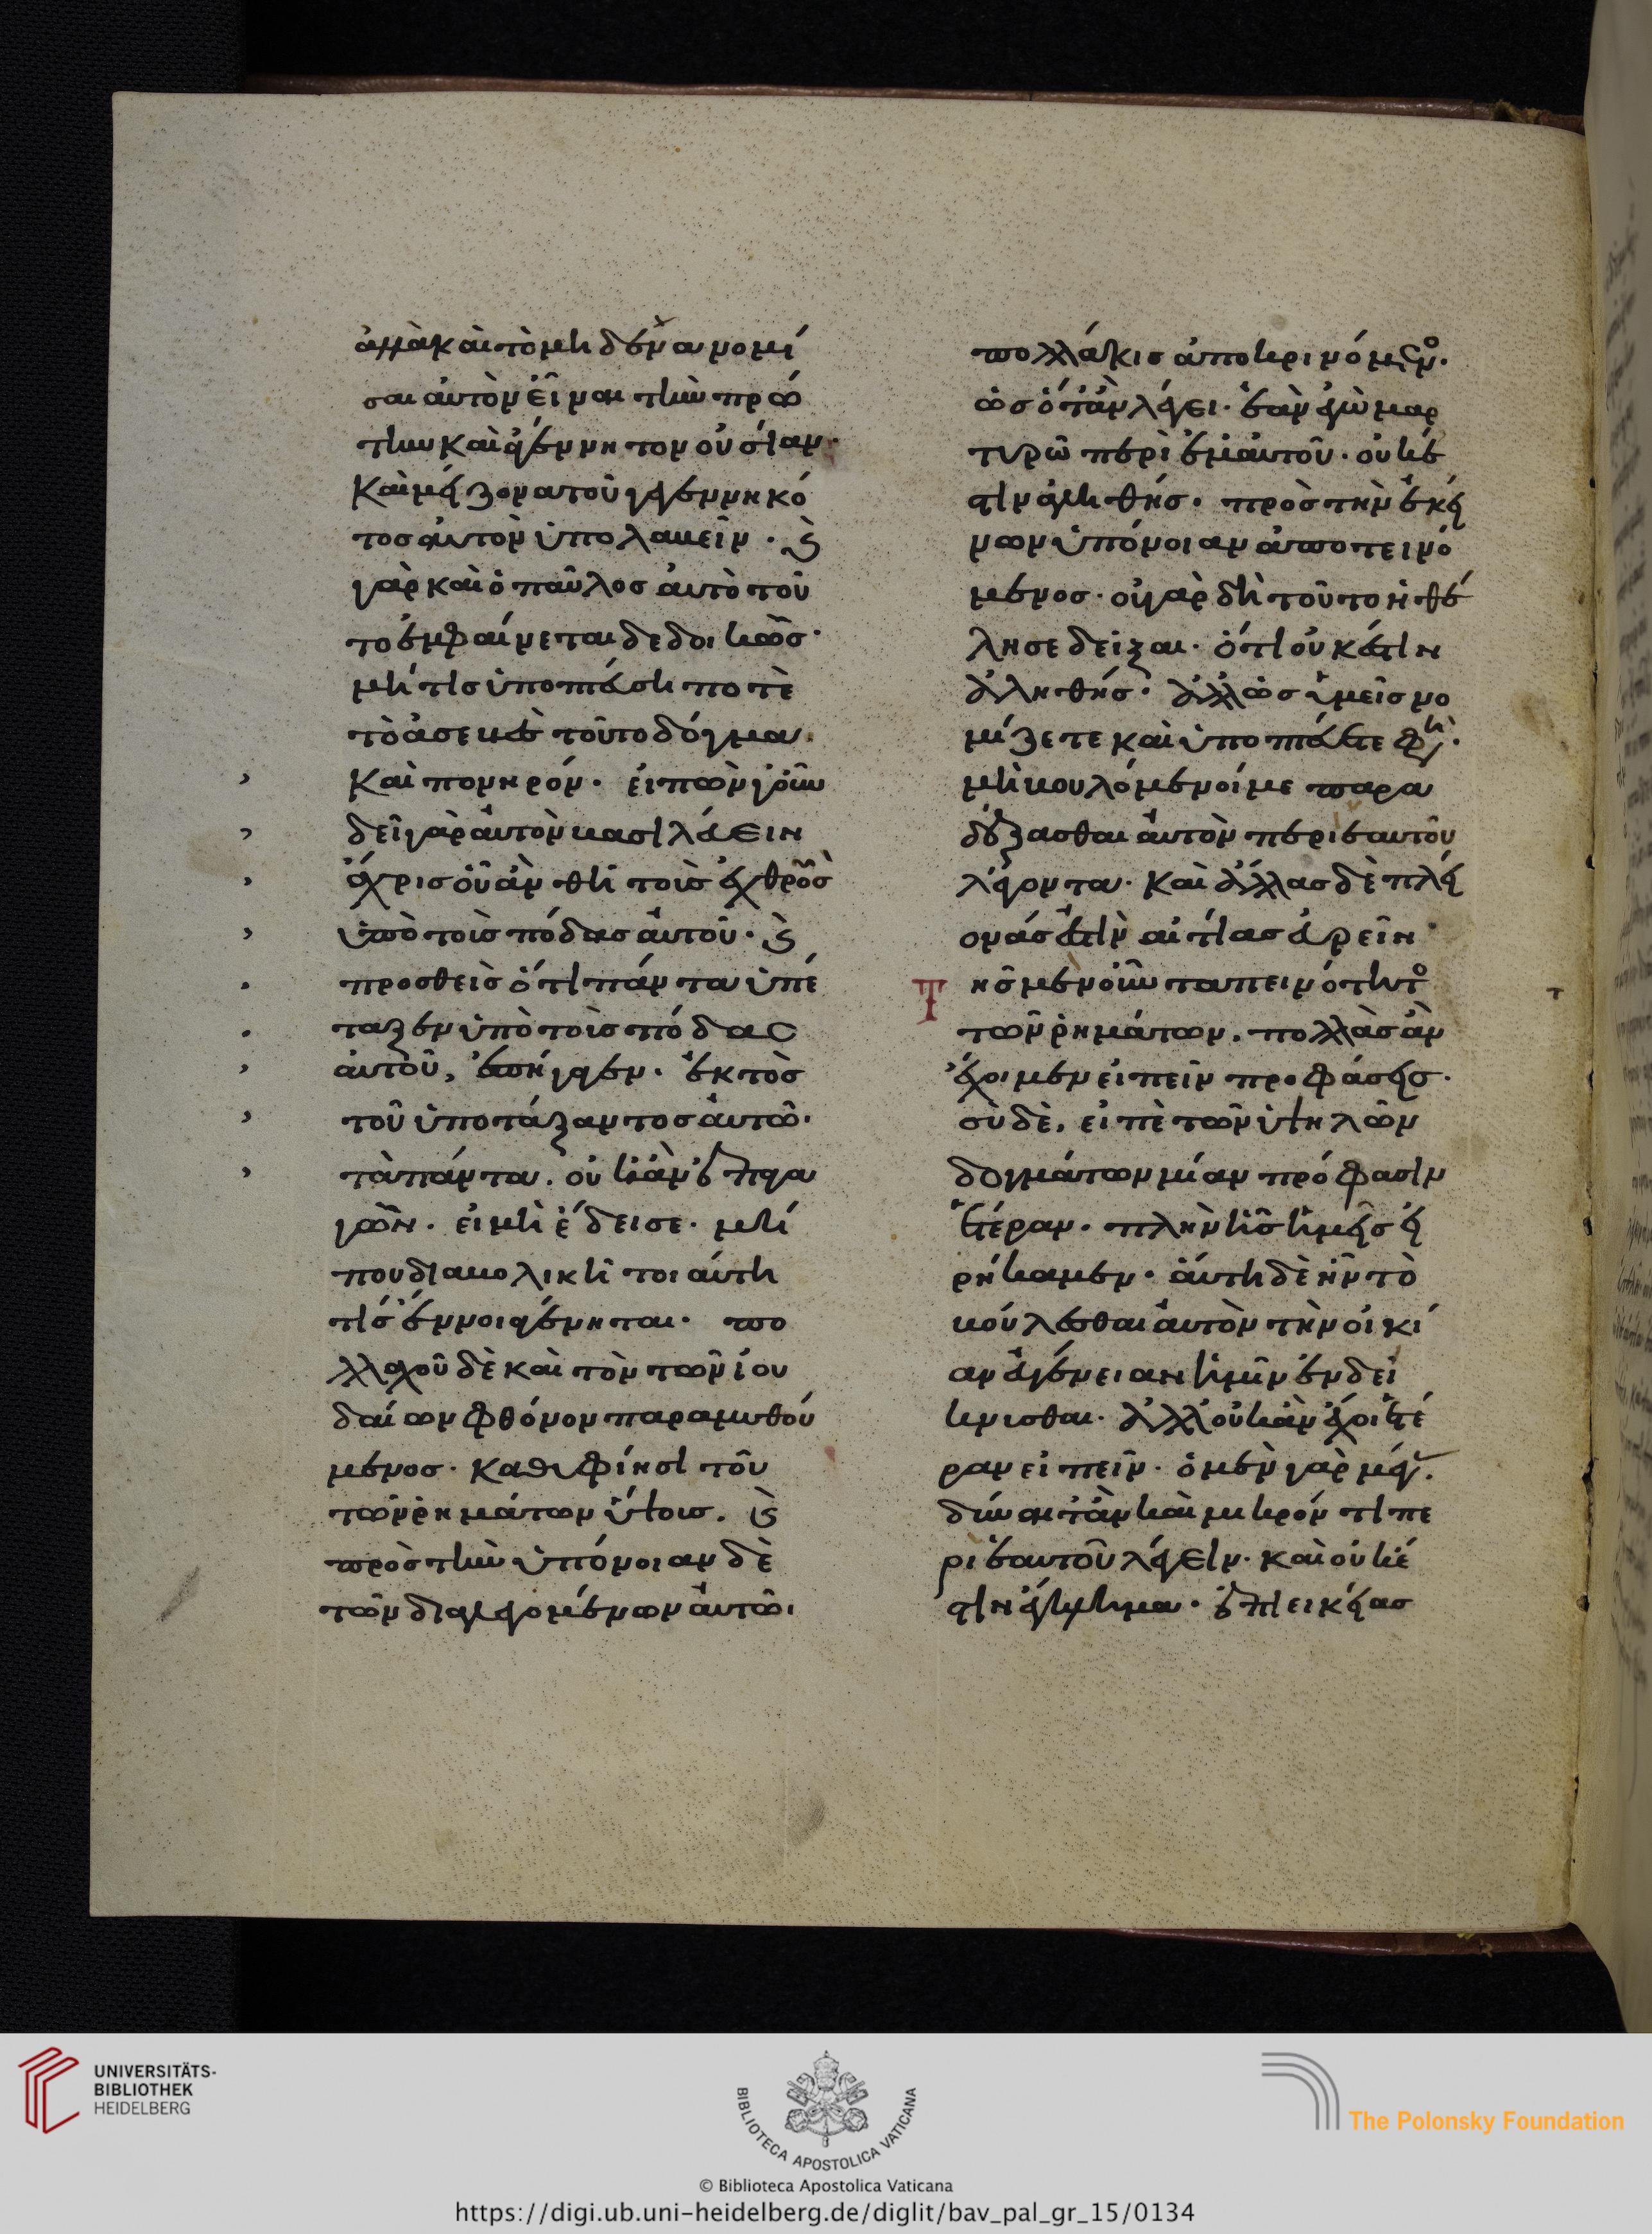 ἀλλὰ καὶ τὸ μηδένα νομί
σαι αὐτὸν εἶναι τὴν πρώ
την καὶ ἀγέννητον οὐσίαν·
καὶ μείζονα τοῦ γεγεννηκό
τος αὐτὸν ὑπολαβεῖν· ϗ
γὰρ καὶ ὁ παῦλος αὐτὸ τοῦ
το ἐμφαίνεται δεδοικὼς·
μή τις ὑποπτεύση ποτὲ
τὸ ἀσεβὲς τοῦτο δόγμα·
καὶ πονηρόν· εἰπὼν γοῦν
δεῖ γὰρ αὐτὸν βασιλεύειν
ἄχρις οὗ ἂν θῆ τοὺς ἐχθροὺς
ὑπὸ τοὺς πόδας αὐτοῦ· ϗ
προσθεὶς ὅτι πάντα ὑπέ
ταξεν ὑπὸ τοὺς πόδας
αὐτοῦ, ἐπήγαγεν· ἐκτὸς
τοῦ ὑποτάξαντος αὐτῶ·
τὰ πάντα. οὐκ ἂν ἐπαγα
γὼν· εἰ μὴ ἔδεισε· μή
που διαβολική τοιαύτη
τίς ἔννοια γένηται· πο
λλαχοῦ δὲ καὶ τὸν τῶν ἰου
δαίων φθόνον παραμυθού
μενος· καθυφίησι τοῦ
τῶν ῥημάτων ὕψους. ϗ
πρὸς τὴν ὑπόνοιαν δὲ
τῶν διαλεγομένων αὐτῶ·
πολλάκις ἀποκρινόμενος·
ὡς ὅταν λέγει· ἐὰν ἐγὼ μαρ
τυρῶ περὶ ἐμαυτοῦ· οὐκ ἔ
στιν ἀληθής· πρὸς τὴν ἐκεί
νων ὑπόνοιαν ἀποτεινό
μενος· οὐ γὰρ δὴ τοῦτο ἠθέ
λησε δεῖξαι· ὅτι οὐκ ἔστιν
ἀληθής· ἀλλ' ὡς ὑμεῖς νο
μίζετε καὶ ὑποπτεύετε φησὶ·
μὴ βουλόμενοί με παρα
δέξασθαι αὐτὸν περὶ ἑαυτοῦ
λέγοντα· καὶ ἄλλας δὲ πλεί
ονάς ἐστιν αἰτίας εὑρεῖν·
Τῆς μὲν οὖν ταπεινότητος
τῶν ῥημάτων. πολλὰς ἂν
ἔχοιμεν εἰπεῖν προφάσεις·
σὺ δὲ, εἰπὲ τῶν ὑψηλῶν
δογμάτων μίαν πρόφασιν
ἑτέραν· πλὴν ἧς ἡμεῖς εἰ
ρήκαμεν· αὕτη δὲ ἦν τὸ
βούλεσθαι αὐτὸν τὴν οἰκεί
αν εὐγένειαν ἡμῖν ἐνδεί
κνυσθαι· ἀλλ' οὐκ ἂν ἔχοις ἑτέ
ραν εἰπεῖν· ὁ μὲν γὰρ μέγας·
δύναιτ' ἂν καὶ μικρόν τι πε
ρὶ ἑαυτοῦ λέγειν· καὶ οὐκ ἔ
στιν ἔγκλημα· ἐπιεικείας
UNIVERSITÄTS-
BIBLIOTHEK
HEIDELBERG
BIBLIOTECA APOSTOLICA VATICANA
The Polonsky Foundation
© Biblioteca Apostolica Vaticana
https://digi.ub.uni-heidelberg.de/diglit/bav_pal_gr_15/0134